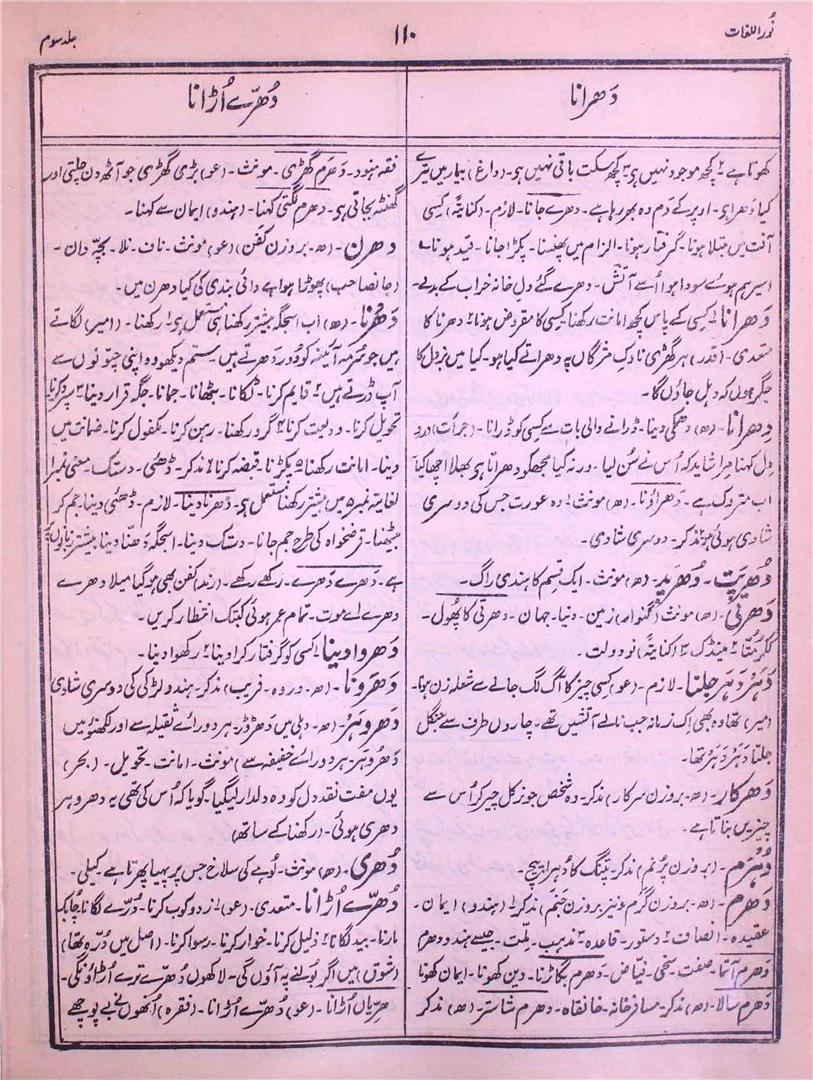 نُور اللغات
۱۱۰
جلد سوم
دَھرانا
دُھرّے اُڑانا
کھوتا ہے ۲ کچھ موجود نہیں ہو ۳ کچھ سکت باقی نہیں ہو۔ (داغ) بیمار میں تیرے
کیا دَھرا ہو۔ اوپر کے دم وہ بھر رہا ہے۔ دھرے جانا۔ لازم۔ (کنایۃً) کسی
آفت میں مبتلا ہونا۔ گرفتار ہونا۔ الزام میں پھنسنا۔ پکڑا جانا۔ قید ہونا
اسیر ہم ہوئے سودا ہوا اُسے آتش۔ دھرے گئے دلِ خانہ خراب کے بدلے۔
دَھرانا ۱ کسی کے پاس کچھ امانت رکھنا۔ کسی کا مقروض ہونا ۲ دھرنا کا
متعدی۔ (قدر) ہر گھڑی ناوکِ مژگاں پہ دھراتے کیا ہو۔ کیا میں بزدل کا
جگر ہوں کہ دہل جاؤں گا۔
دِھرانا۔ (ھ) دھمکی دینا۔ ڈرانے والی بات سے کسی کو ڈرانا۔ (جرأت) دردِ
دل کہنا مرا شاید کہ اُس نے سُن لیا۔ ورنہ کیا مجھکو دھراتا ہو بھلا اچھا کیا
اب متروک ہے۔ دَھراؤنا۔ (ھ) مونث ۱ وہ عورت جس کی دوسری
شادی ہوئی ہو ۲ مذکر۔ دوسری شادی۔
دُھرپَت۔ دُھرپَد۔ (ھ) مونث۔ ایک قسم کا ہندی راگ۔
دَھرتی۔ (ھ) مونث (گنوار) زمین۔ دنیا۔ جہان۔ دھرتی کا پھُول۔
ککرمتّا ۲ مینڈک ۳ (کنایۃً) نو دولت۔
دَہَر دَہَر جلنا۔ لازم۔ (عو) کسی چیز کا آگ لگ جانے سے شعلہ زن ہونا۔
(امیر) تھا وہ بھی اِک زمانہ جب نالے آتشیں تھے۔ چاروں طرف سے جنگل
جلتا دَہَر دَہَر تھا۔
دَھرکار۔ (ھ۔ بروزن سرکار) مذکر۔ وہ شخص جو نرکل چیر کر اُس سے
چیزیں بناتا ہے۔
دُھَرَم۔ (بروزن پُرنم) مذکر۔ پتنگ کا دُہرا پیچ۔
دَھرَم۔ (ھ۔ بروزن گرم و نیز بروزن جَہَنم) مذکر ۱ (ہندو) ایمان۔
عقیدہ۔ انصاف ۲ دستور۔ قاعدہ ۳ مذہب۔ ملّت۔ جیسے ہندو دھرم
دھرم آتما۔ صفت۔ سخی۔ فیّاض۔ دھرم بگاڑنا۔ دین کھونا۔ ایمان کھونا
دَھرم سالا۔ (ھ) مذکر۔ مسافر خانہ۔ خانقاہ۔ دھرم شاستر۔ (ھ) مذکر
فقہ ہنود۔ دَھرَم گھڑی۔ مونث۔ (عو) بڑی گھڑی جو آٹھ دن چلتی اور
گھنٹہ بجاتی ہو۔ دھرم لگتی کہنا۔ (ہندو) ایمان سے کہنا۔
دھرن۔ (ھ۔ بروزن کفن) (عو) مونث۔ ناف۔ نلا۔ بچّہ دان۔
(جانصاحب) پھوٹتا ہوا ہے دائی بندی کی کیا دھرن میں۔
دَھرنا۔ (ھ) اب اسجگہ بیشتر رکھنا ہی مستعمل ہو ۱ رکھنا۔ (امیر) لگاتے
ہیں جو سُرمہ آئینہ کو دُور دَھرتے ہیں۔ ستم دیکھو وہ اپنی چتونوں سے
آپ ڈرتے ہیں ۲ قایم کرنا۔ ٹِکانا۔ بٹھانا۔ جمانا۔ جگہ قرار دینا ۳ سپرد کرنا
تحویل کرنا۔ ودیعت کرنا ۴ گرو رکھنا۔ رہن کرنا۔ مکفول کرنا۔ ضمانت میں
دینا۔ امانت رکھنا ۵ پکڑنا۔ قبضہ کرنا ۶ مذکر۔ ڈھئی۔ دستک۔ معنی نمبر ۱
لغایتہ نمبر ۵ میں بیشتر رکھنا مستعمل ہو۔ دَھرنا دینا۔ لازم۔ ڈھئی دینا۔ جم کر
بیٹھنا۔ قرضخواہ کی طرح جم جانا۔ دستک دینا۔ اسجگہ دَھنّا دینا بیشتر زبانوں پر
ہے۔ دَھرے دَھرے۔ رکھے رکھے۔ (رند) کفن بھی ہو گیا میلا دھرے
دھرے اے موت۔ تمام عمر ہوئی کبتک انتظار کریں۔
دَھروا دینا ۱ کسی کو گرفتار کرا دینا ۲ رکھوا دینا۔
دَھرَونا۔ (ھ۔ در وہ۔ فریب) مذکر۔ ہندو لڑکی کی دوسری شادی
دَھروہَر۔ (ھ۔ دہلی میں دَھرڈر۔ ہر دو رائے ثقیلہ سے اور لکھنؤ میں
دَھروہَر۔ ہر دو رائے خفیفہ سے) مونث۔ امانت۔ تحویل۔ (بحر)
یوں مفت نقدِ دل کو وہ دلدار لیگیا۔ گویا کہ اُس کی تھی یہ دھروہر
دھری ہوئی۔ (رکھنا کے ساتھ)
دُھری۔ (ھ) مونث۔ لوہے کی سلاخ جس پر پہیا پھرتا ہے۔ کیلی۔
دُھرّے اُڑانا۔ متعدی۔ (عو) ۱ زد و کوب کرنا۔ دُرّے لگانا۔ چابک
مارنا۔ بید لگانا ۲ ذلیل کرنا۔ خوار کرنا۔ رسوا کرنا۔ (اصل میں دُرّہ تھا)
(شوق) میں اگر بولنے پہ آؤں گی۔ لاکھوں دُھرّے ترے اُڑاؤنگی۔
دھریاں اُڑانا۔ (عو) دُھرّے اُڑانا۔ (فقرہ) اُنھوں نے بے پوچھے